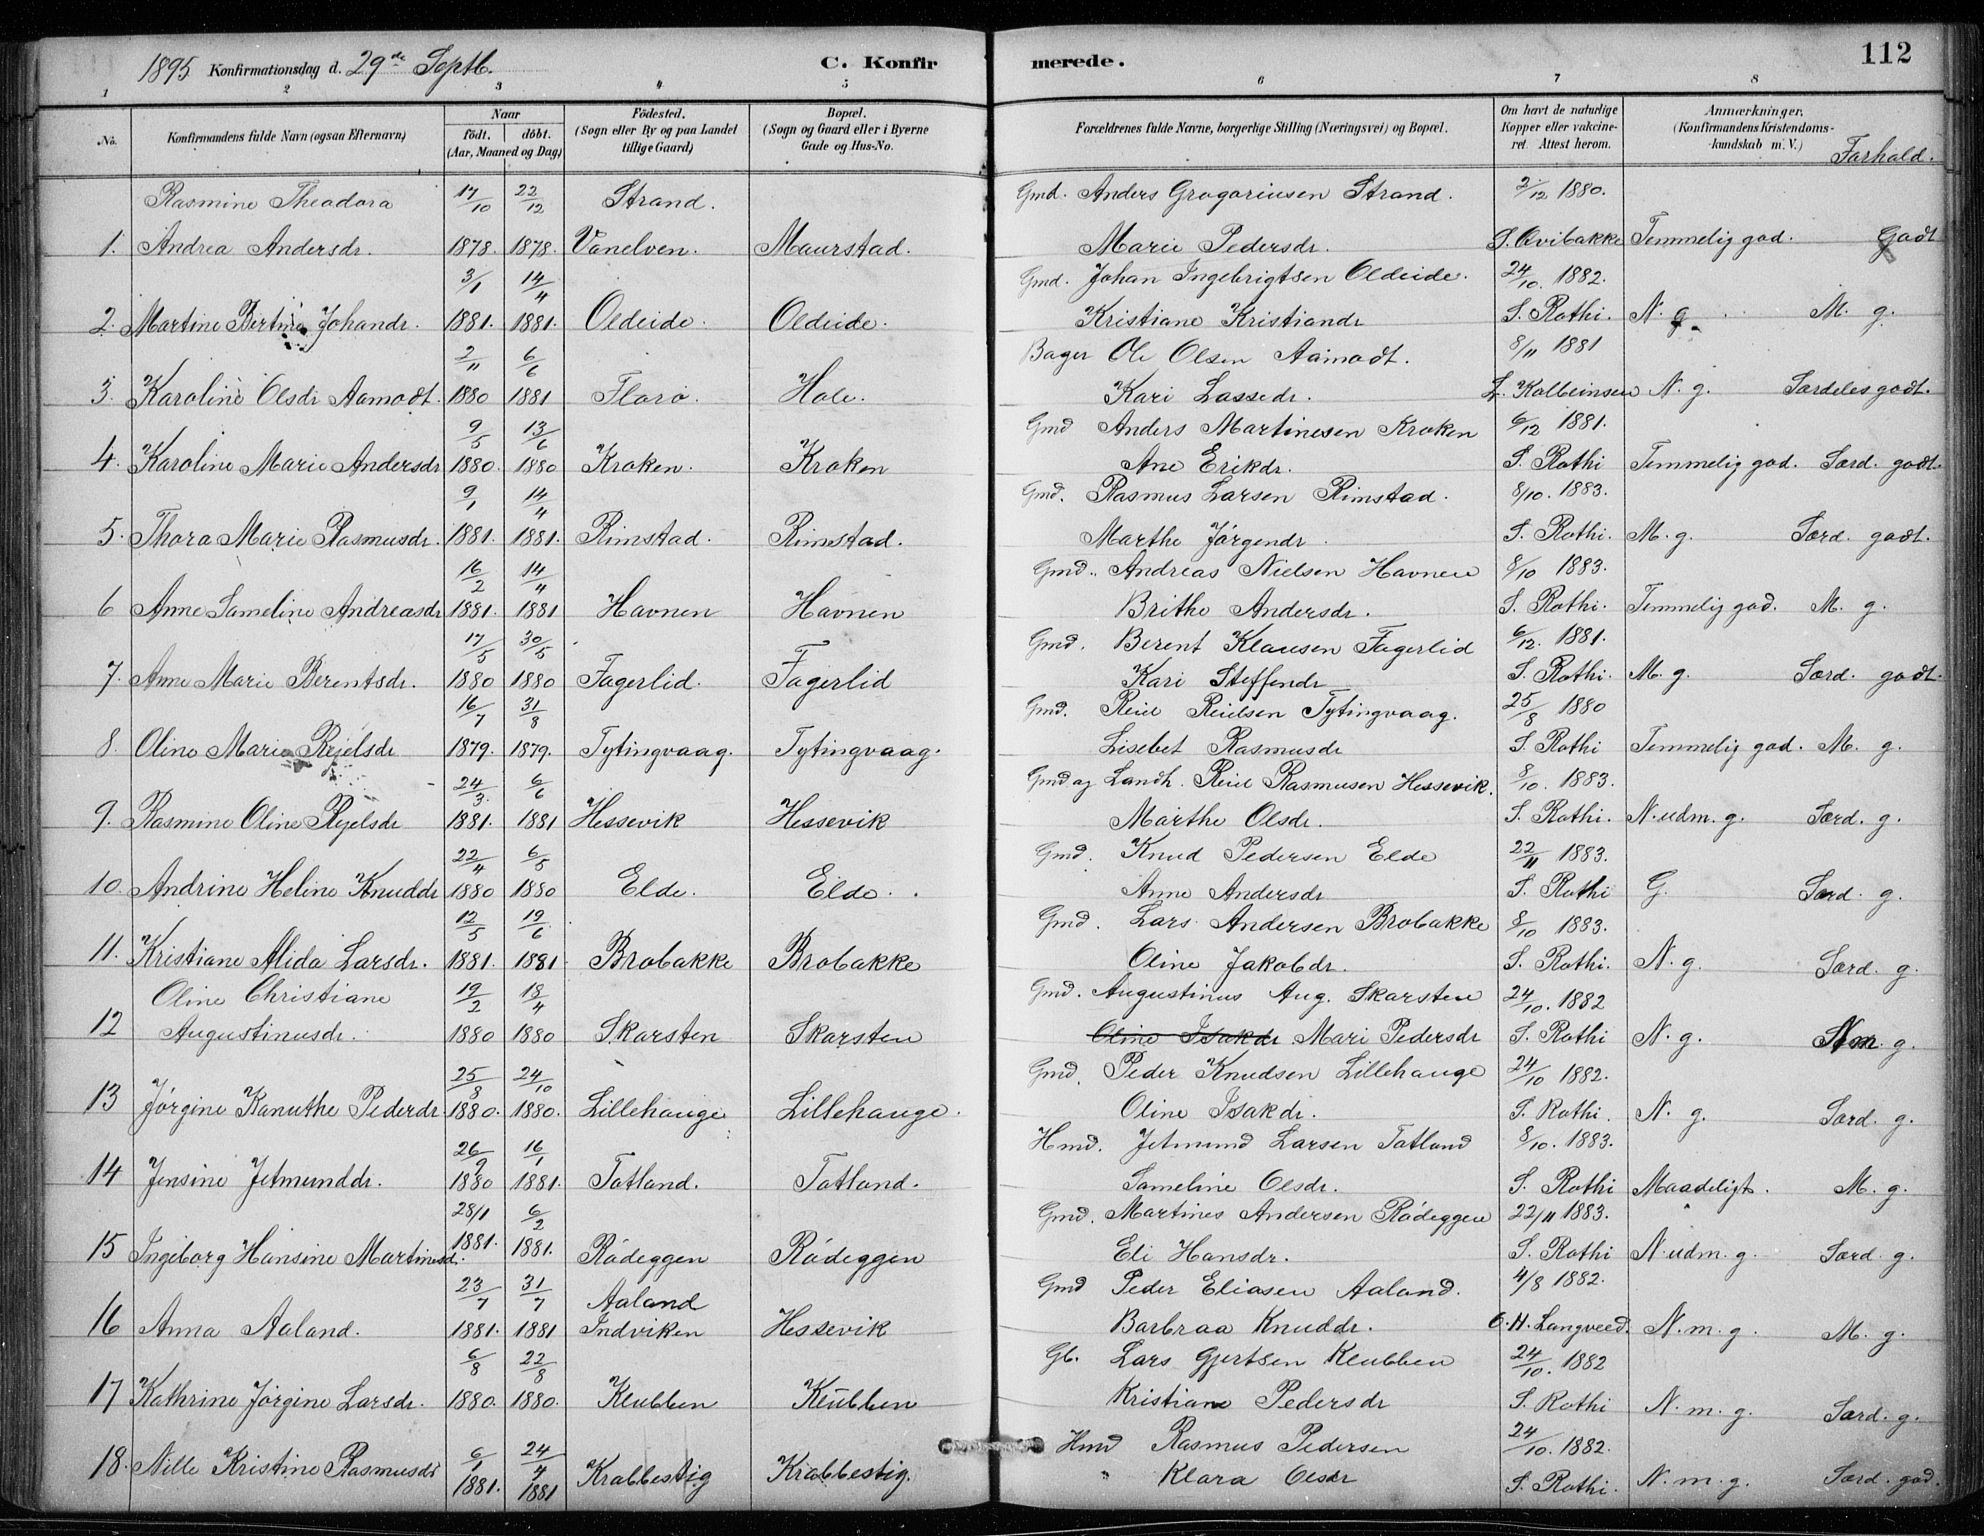 112
1895 Konfirmationsdag d. 29de Septb. C. Konfirmerede.
1 2 3 4 5 6 7 8
No. Konfirmandens fulde Navn (ogsaa Efternavn) Naar födt. döbt. (Aar, Maaned og Dag) Födested. (Sogn eller By og paa Landet tillige Gaard) Bopæl. (Sogn og Gaard eller i Byerne Gade og Hus-No. Forældrenes fulde Navne, borgerlige Stilling (Næringsvei) og Bopæl. Om havt de naturlige Kopper eller vakcineret. Attest herom. Anmærkninger. (Konfirmandens Kristendomskundskab m. V.) Forhold.
Rasmine Theodora 17/10 22/12 Strand. Gmd. Anders Gregoriusen Strand. 2/12 1880.
1. Andrea Andersdr. 1878. 1878. Vanelven. Maurstad. Marie Pedersdr. S. Qvibakke Temmelig god. Godt
3/1 14/4 Gmd. Johan Ingebrigtsen Oldeide. 24/10. 1882.
2. Martine Bertine Johandr. 1881. 1881. Oldeide. Oldeide. Kristiane Kristiandr S. Rothi. N. g. M. g.
2/11 6/6 Bager Ole Olsen Aamodt. 8/11 1881
3. Karoline Olsdr Aamodt. 1880 1881 Florø. Hole. Kari Lassedr. L. Kolbeinsen N. g. Særdeles godt.
9/5 13/6 Gmd Anders Martinesen Kroken 6/12 1881.
4. Karoline Marie Andersdr 1880. 1880 Kroken. Kroken Ane Erikdr. S. Rothi Temmelig god. Særd. godt.
9/1 14/4 Gmd. Rasmus Larsen Rimstad. 8/10. 1883.
5. Thora Marie Rasmusdr. 1881. 1881. Rimstad. Rimstad. Marthe Jørgendr. S. Rothi. M. g. Særd. godt.
16/2 14/4 Gmd. Andreas Nielsen Havnen 8/10 1883.
6 Anne Sameline Andreasdr 1881. 1881 Havnen Havnen Brithe Andersdr. S. Rothi. Temmelig god. M. g.
17/5 30/5 Gmd. Berent Klausen Fagerlid 6/12. 1881.
7. Anne Marie Berentsdr. 1880 1880 Fagerlid. Fagerlid Kari Steffendr S. Rothi. M. g. Særd. godt.
16/7 31/8 Gmd. Reiel Reielsen Tytingvaag. 25/8 1880
8. Oline Marie Rejelsdr 1879. 1879. Tytingvaag. Tytingvaag. Lisebet Rasmusdr S. Rothi Temmelig god. M. g.
24/3. 6/6 Gmd og Landh. Reiel Rasmusen Hessevik. 8/10. 1883.
9. Rasmine Oline Rejelsdr 1881. 1881 Hessevik Hessevik Marthe Olsdr. S. Rothi. N. udm. g. Særd. g.
22/4 6/5 Gmd. Knud Pedersen Elde 22/11 1883.
10. Andrine Heline Knuddr 1880 1880 Elde. Elde. Anne Andersdr S. Rothi G. Særd. g.
12/5 19/6 Gmd. Lars Andersen Brobakke 8/10 1883.
11. Kristiane Alida Larsdr. 1881. 1881. Brobakke Brobakke Oline Jakobdr. S. Rothi. N. g. Særd. g.
Oline Christiane 19/2 18/4 Gmd. Augustinus Aug. Skarsten 24/10. 1882
12 Augustinusdr. 1880 1880 Skarsten Skarsten Oline Isakdr Mari Pedersdr S. Rothi N. g. g.
25/8 24/10 Gmd. Peder Knudsen Lillehauge 24/10 1882.
13 Jørgine Kanuthe Pederdr. 1880. 1880. Lillehauge Lillehauge. Oline Isakdr. S. Rothi N. g. Særd. g.
26/9 16/1 Hmd. Jetmund Larsen Totland 8/10. 1883.
14 Jensine Jetmunddr. 1880 1881. Totland. Totland. Sameline Olsdr. S. Rothi Maadeligt. M. g.
28/1 6/2 Gmd. Martines Andersen Rödeggen 22/11 1883.
15 Ingeborg Hansine Martinesd. 1881. 1881. Rödeggen Rödeggen Eli Hansdr. S. Rothi N. udm. g. Særd. g.
23/7 31/7 Aaland Gmd Peder Eliasen Aaland. 4/8 1882.
16 Anna Aaland. 1881. 1881 Indviken Hessevik Barbraa Knuddr. O. H. Langveed. N. m. g. M. g.
6/8 22/8 Gb. Lars Gjertsen Klubben 24/10. 1882
17 Kathrine Jørgine Larsdr. 1880. 1880. Klubben Klubben Kristiane Pedersdr S. Rothi N. m. g. Særd. g.
6/1 24/4 Hmd Rasmus Pedersen 24/10. 1882.
18. Nille Kristine Rasmusdr 1881. 1881 Krabbestig Krabbestig. " Klara Olsdr S. Rothi. N. m. g. Særd. god.